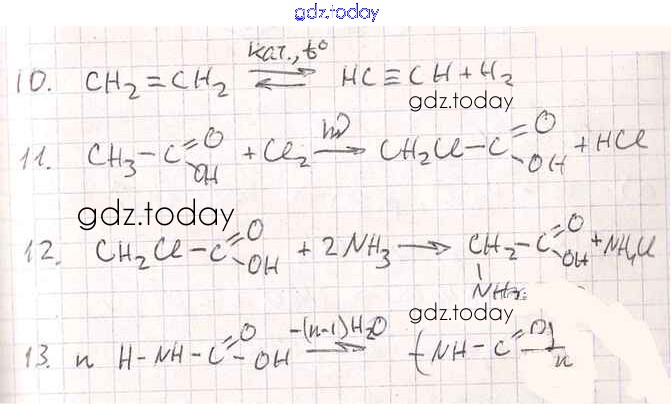 gdz.today
10. CH₂=CH₂ ⇌ (кат., t°) HC≡CH + H₂
gdz.today
11. CH₃–C(=O)–OH + Cl₂ →(hν) CH₂Cl–C(=O)–OH + HCl
gdz.today
12. CH₂Cl–C(=O)–OH + 2NH₃ → CH₂–C(=O)–OH + NH₄Cl
NH₂
gdz.today
13. n H–NH–C(=O)–OH ⇌ (–(n–1)H₂O) (NH–C(=O))n